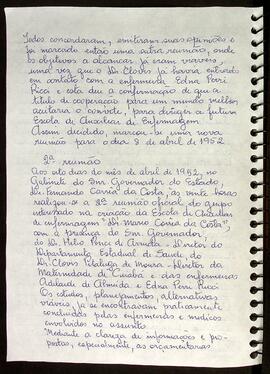 Todos concordaram, emitiram suas opiniões e
foi marcado então uma outra reunião, onde
os objetivos a alcançar já eram viáveis,
uma vez que o Dr. Clóvis já havia entrado
em contato com a enfermeira Edna Perri
Ricci e esta deu a confirmação de que a
título de cooperação para um mundo melhor
aceitaria o convite, para dirigir a futura
Escola de Auxiliar de Enfermagem.
Assim decidido, marcou-se uma nova
reunião para o dia 8 de abril de 1952.
2ª reunião
Aos oito dias do mês de abril de 1952, no
Gabinete do Snr. Governador do Estado,
Dr. Fernando Corrêa da Costa, às vinte horas
realizou-se a 2ª reunião oficial do grupo
interessado na criação da Escola de Auxiliar
de enfermagem "Dr. Mário Corrêa da Costa",
com a presença do Snr. Governador,
do Dr. Hélio Ponce de Arruda - Diretor do
Departamento Estadual de Saúde, do
Dr. Clóvis Pitaluga de Moura - Diretor da
Maternidade de Cuiabá e das enfermeiras
Adelaide de Almeida e Edna Perri Ricci
Os estudos, planejamentos, alternativas
viáveis, já se encontravam praticamente
concluídos pelas enfermeiras e médicos
envolvidos no assunto.
Mediante a clareza de informações e pro-
postas, especialmente, as orçamentárias